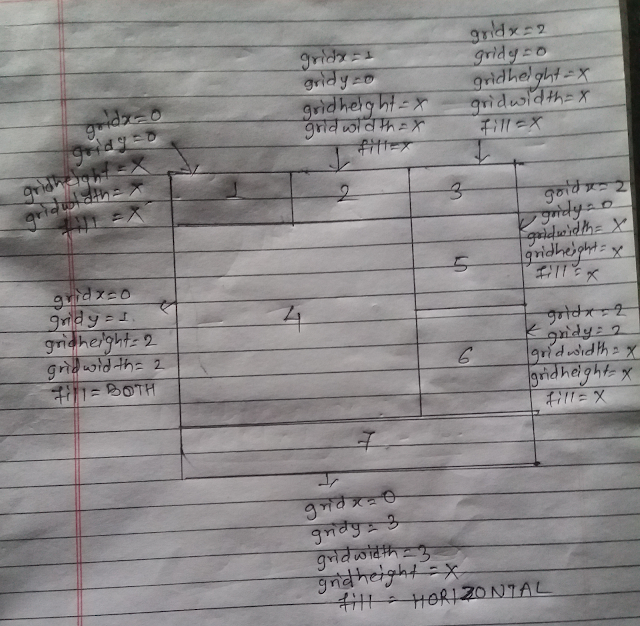 gridx=0
gridy=0
gridheight=X
gridwidth=X
fill=X
gridx=1
gridy=0
gridheight=X
gridwidth=X
fill=X
gridx=2
gridy=0
gridheight=X
gridwidth=X
fill=X
1
2
3
gridx=2
gridy=0
gridwidth=X
gridheight=X
fill=X
5
gridx=0
gridy=1
gridheight=2
gridwidth=2
fill=BOTH
4
6
gridx=2
gridy=2
gridwidth=X
gridheight=X
fill=X
7
gridx=0
gridy=3
gridwidth=3
gridheight=X
fill=HORIZONTAL